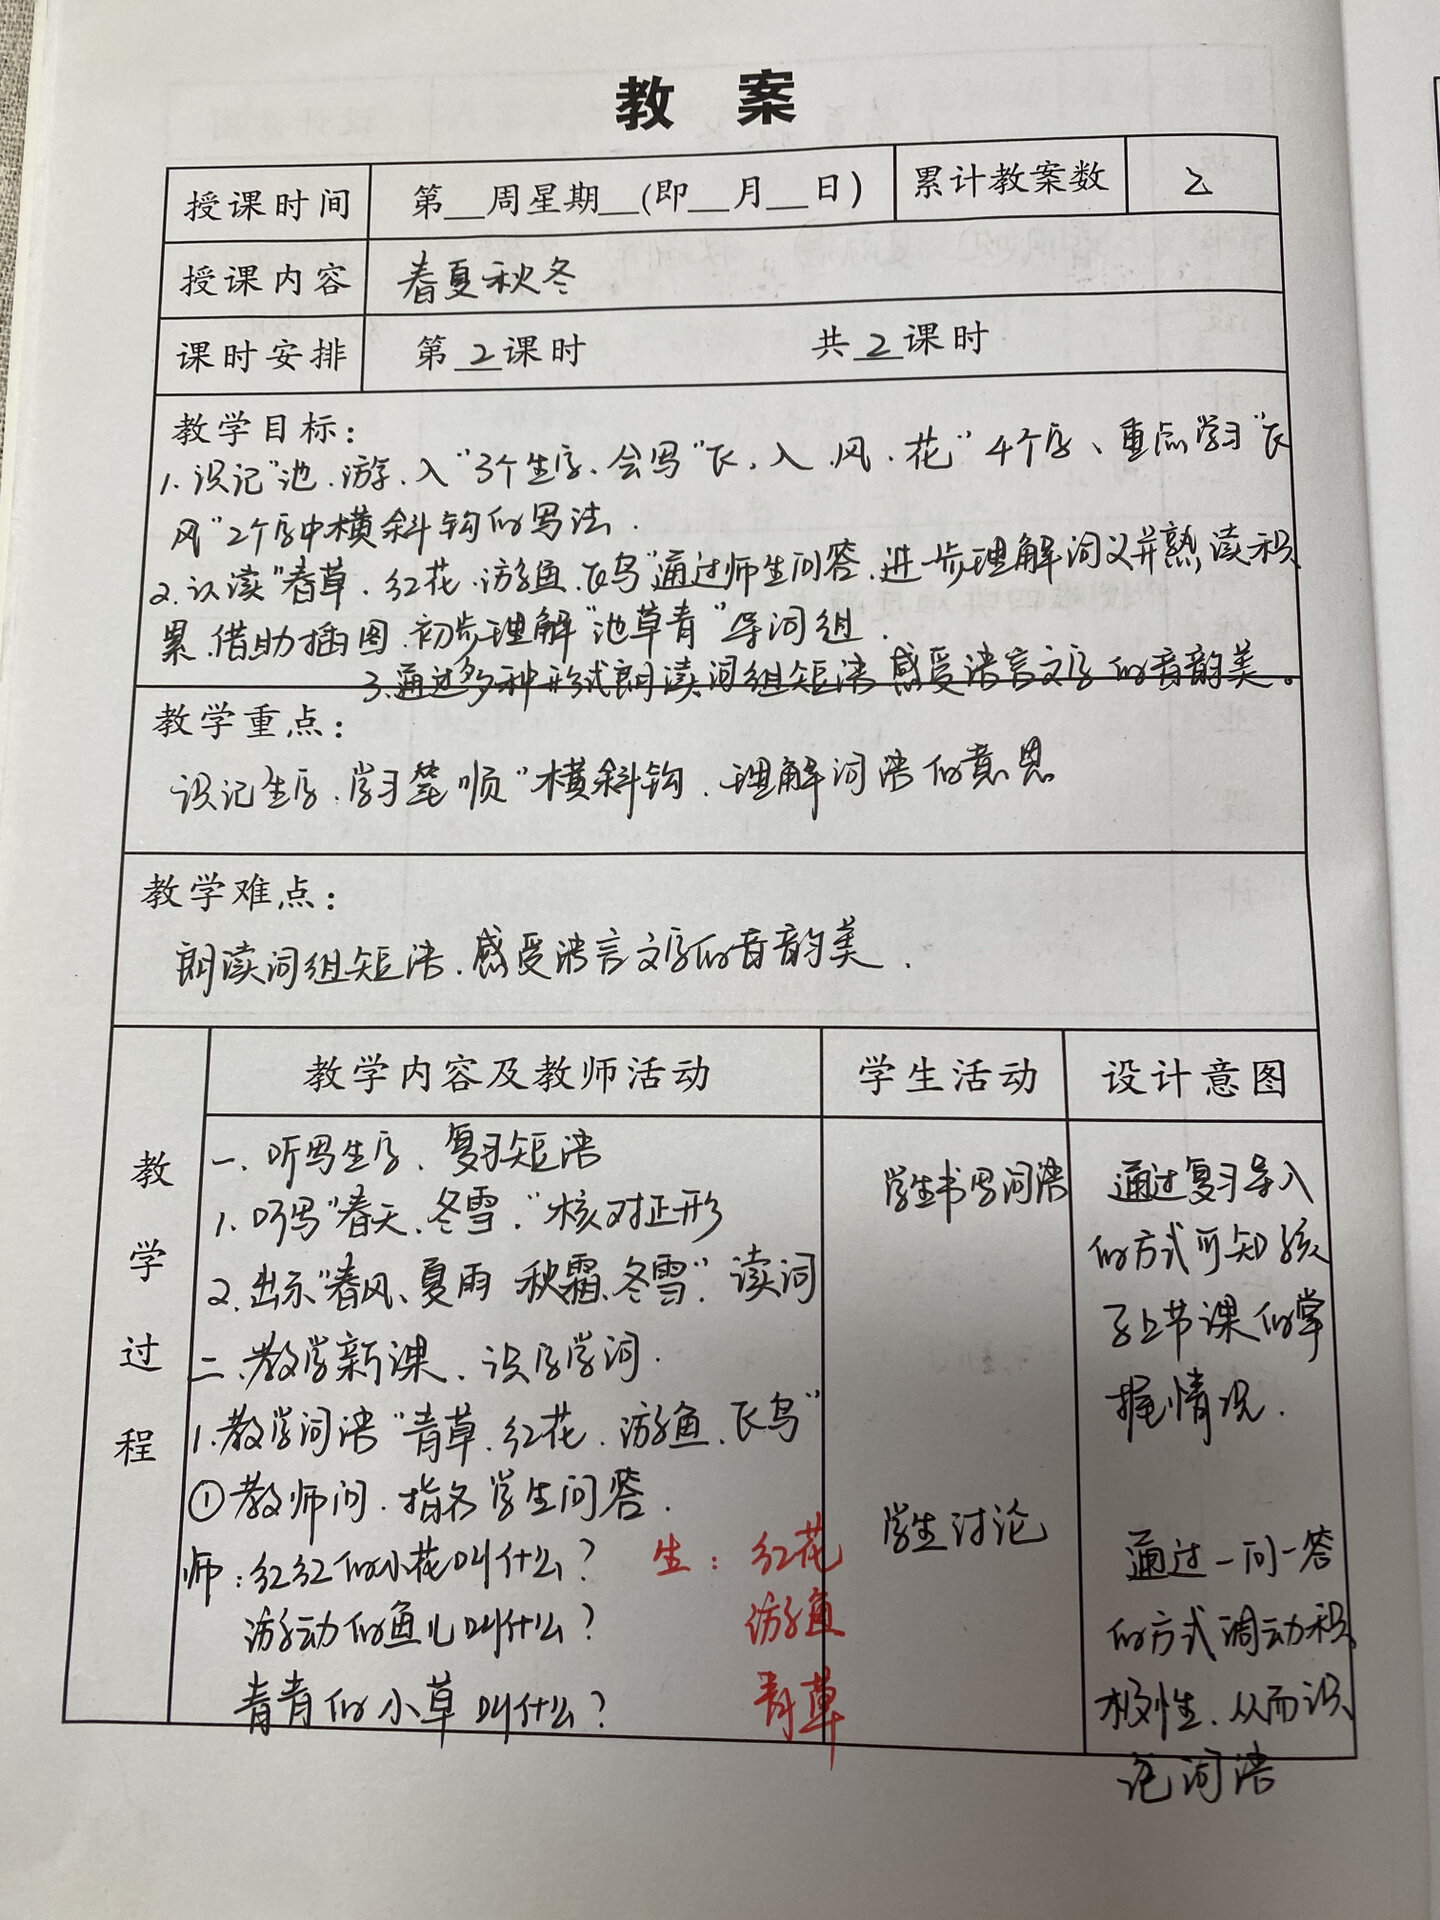 教 案
授课时间 第__周星期__(即__月__日) 累计教案数 2
授课内容 春夏秋冬
课时安排 第 2 课时 共 2 课时
教学目标:
1. 识记"池、游、入"3个生字、会写"飞、入、风、花"4个字、重点学习"飞
风"2个字中横斜钩的写法.
2. 认读"春草、红花、游鱼、飞鸟"通过师生问答、进一步理解词义并熟读积
累、借助插图、初步理解"池草青"等词组.
3. 通过多种形式朗读词组短语 感受语言文字的音韵美。
教学重点:
识记生字、学习笔顺"横斜钩、理解词语的意思
教学难点:
朗读词组短语、感受语言文字的音韵美.
教学过程 教学内容及教师活动 学生活动 设计意图
一、听写生字、复习短语
1. 听写"春天、冬雪、"核对正形
学生书写词语
通过复习导入
的方式可知孩
子上节课的掌
握情况.
2. 出示"春风、夏雨 秋霜、冬雪"、读词
二、教学新课、识字学词.
1. 教学词语"青草、红花、游鱼、飞鸟"
①教师问、指名学生问答.
学生讨论
师:红红的小花叫什么? 生:红花
游动的鱼儿叫什么? 游鱼
青青的小草叫什么? 青草
通过一问一答
的方式调动积
极性、从而识
记词语